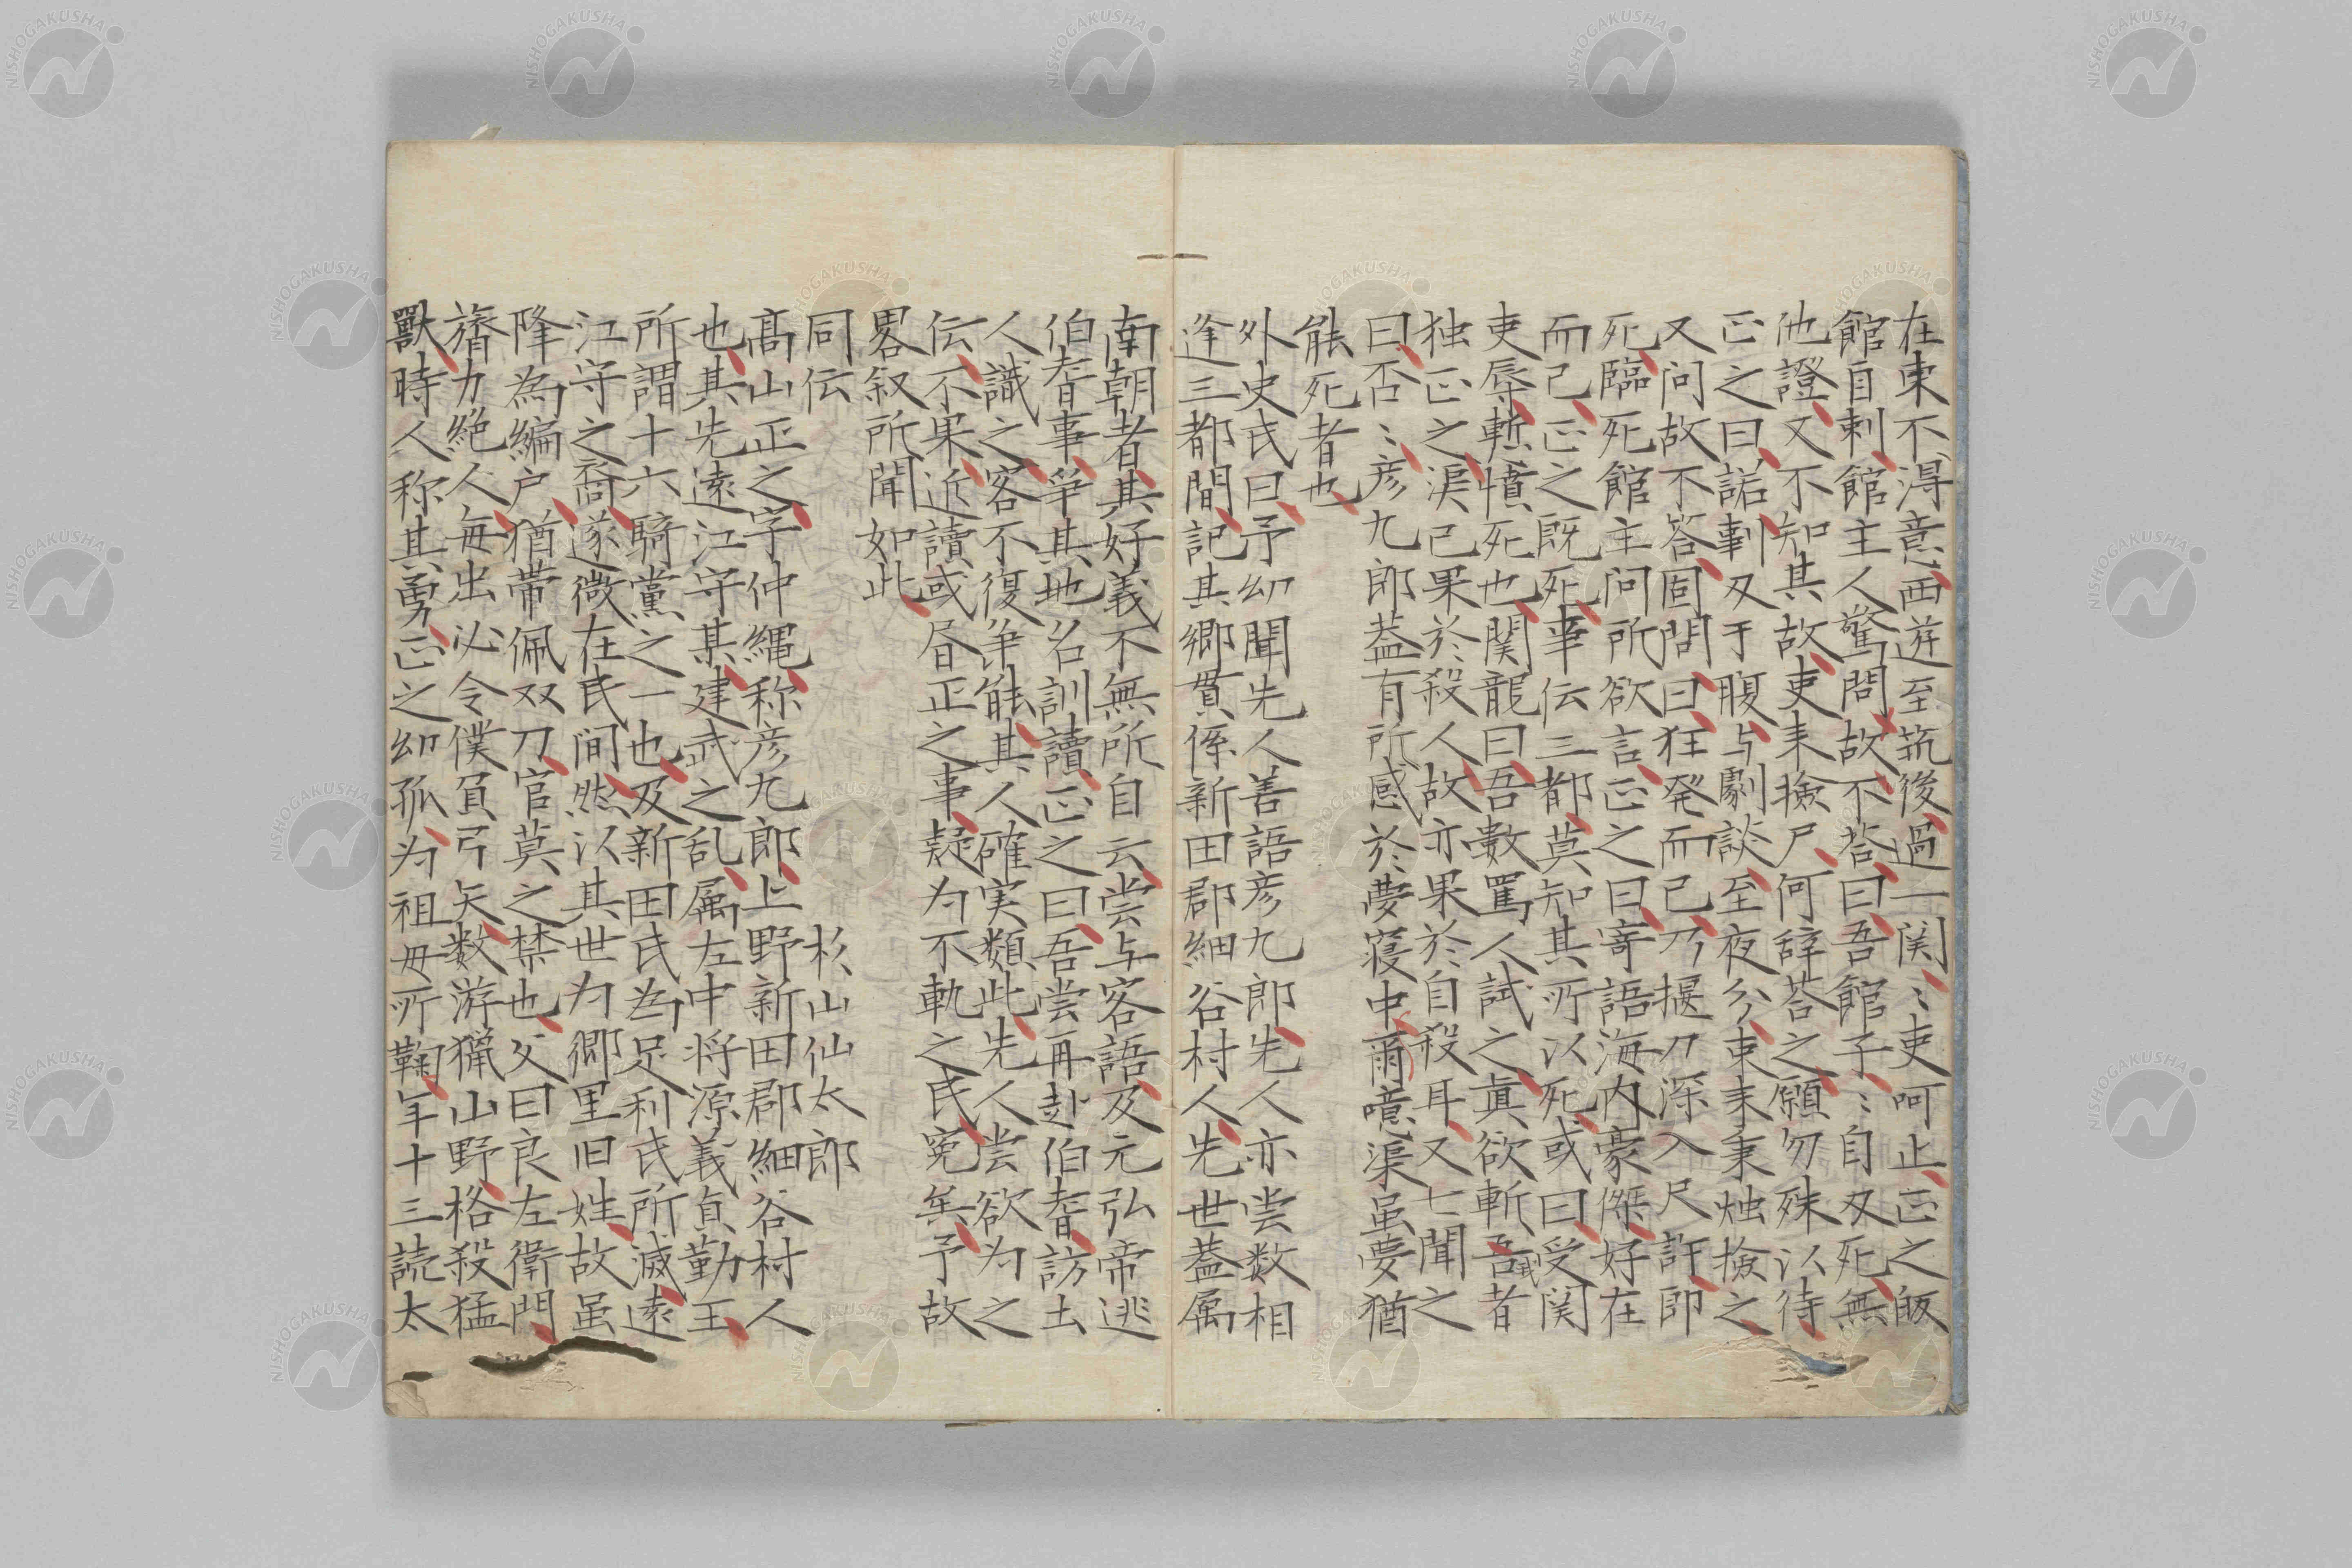 在東不得意西遊至筑後過一関〻吏呵止正之皈
館自刺館主人驚問故不答曰吾館子〻自刄死無
他證又不知其故吏来撿尸何辞荅之願勿殊以待
正之曰諾剚刄于腹与劇談至夜分吏来秉烛撿之
又问故不答固問曰狂発而已乃握刀深入尺許即
死臨死館主问所欲言正之曰寄語海内豪傑好在
而已正之既死事伝三都莫知其所以死或曰受関
吏辱慙憤死也関龍曰吾數罵人試之真欲斬吾者
独正之淚已果於殺人故亦果於自殺耳又七聞之
曰否〻彦九郎葢有所感於夢寝中爾噫渠虽夢猶
能死者也
外史氏曰予幼聞先人善語彦九郎先人亦尝数相
逢三都間記其郷貫係新田郡細谷村人先世葢属
南朝者其好義不無所自云尝与客語及元弘帝逃
伯耆事争其地名訓讀正之曰吾尝再赴伯耆訪土
人識之客不復争能其人確実類此先人尝欲为之
伝不果近讀或昏正之事疑为不軌之民寃矣予故
畧叙所聞如此
同伝　杉山仙太郎
髙山正之字仲縄称彦九郎上野新田郡細谷村人
也其先遠江守某建武之乱属左中将源義貞勤王
所謂十六騎黨之一也及新田氏為足利氏所滅遠
江守之裔遂微在民间然以其世为郷里旧姓故虽
降為編户猶带佩双刀官莫之禁也父曰良左衛門
膂力絶人每出必令僕負弓矢数游獵山野格殺猛
獸時人称其勇正之幼孤为祖毋所鞠年十三読太